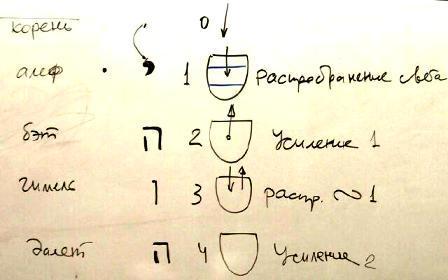 корень 0
алеф י 1 Распространение света
бэт ה 2 Усиление 1
гимель ו 3 распр. ~ 1
далет ה 4 Усиление 2